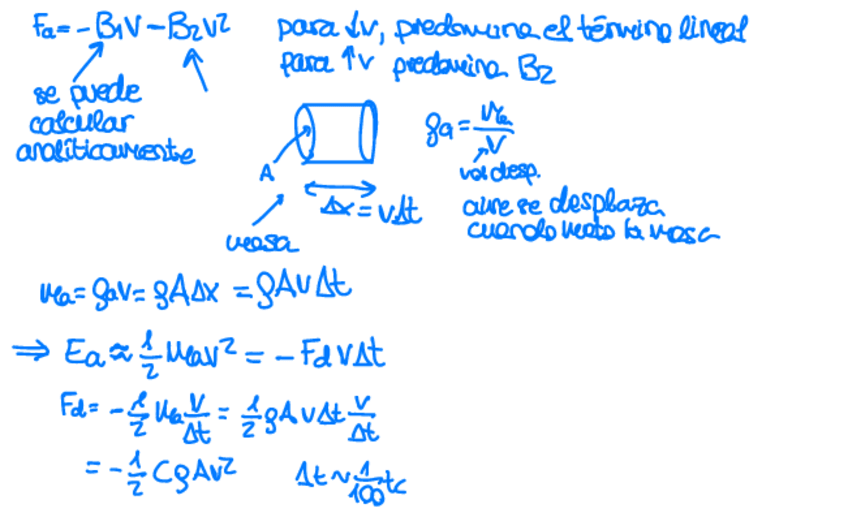 Fa = -B₁V - B₂V² para ↓v, predomina el término lineal
para ↑v predomina B₂
se puede
calcular
analíticamente
A
Δx = vΔt
masa
ρa = ma/V
vol desp.
aire se desplaza
cuando meto la masa
ma = ρaV = ρAΔx = ρAvΔt
⇒ Ea ≈ 1/2 mav² = -Fd vΔt
Fd = -1/2 ma v/Δt = 1/2 ρA vΔt v/Δt
= -1/2 CρAv² Δt ~ 1/100 tc